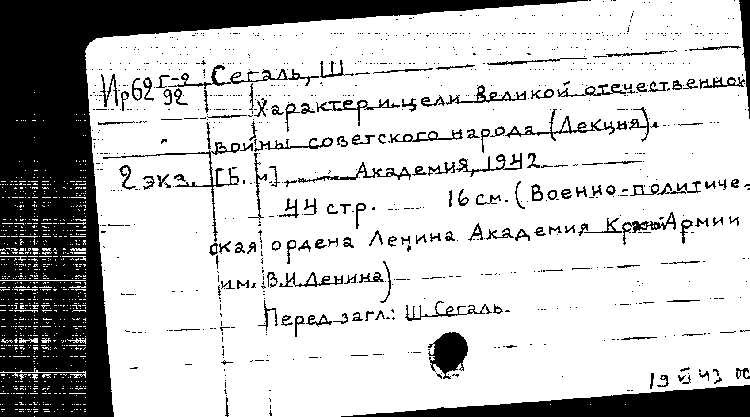 Ир62 Г-2/92 Сегаль, Ш
Характер и цели Великой отечественной
войны советского народа (Лекция).
2 экз. [Б. м], Академия, 1942
44 стр. 16 см. (Военно-политиче-
ская ордена Ленина Академия Красной Армии
им. В.И.Ленина)
Перед загл.: Ш. Сегаль.
19 VI 43